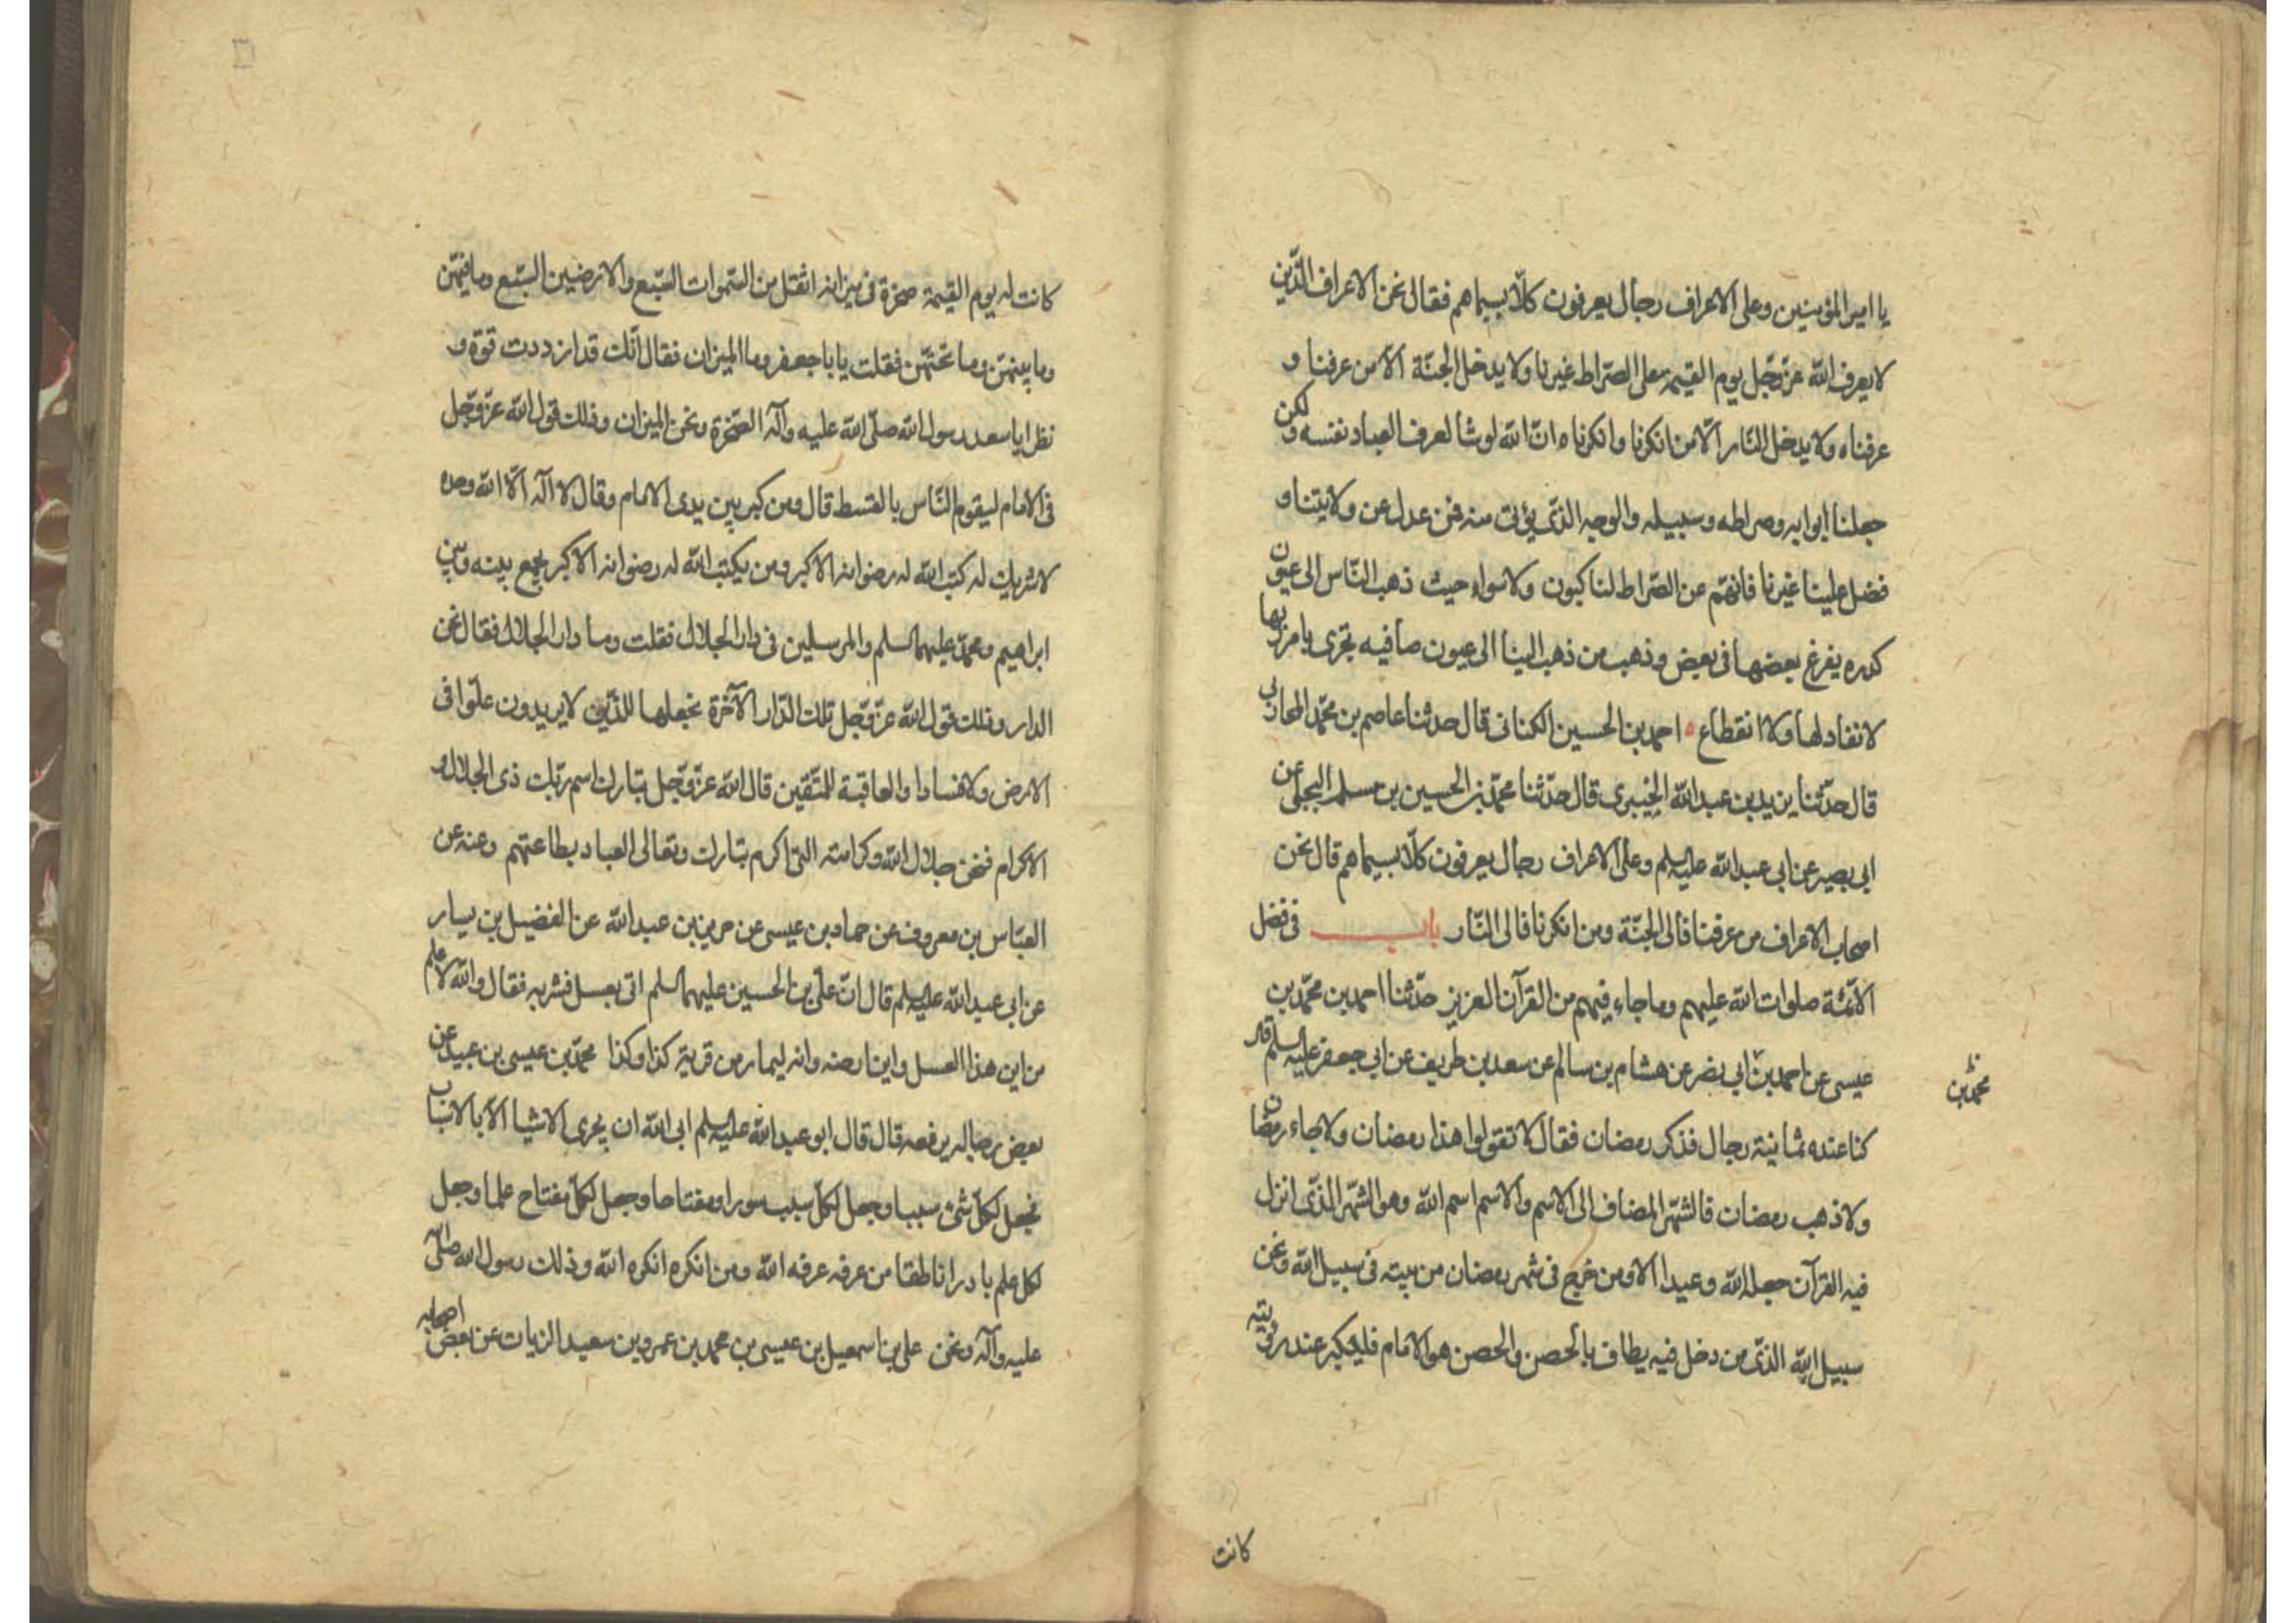 يا امير المؤمنين وعلى الاعراف رجال يعرفون كلّا بسيماهم فقال نحن الاعراف الذّين
لا يعرف الله عزّ وجّل يوم القيمة على الصّراط غيرنا ولا يدخل الجنّة الّا من عرفنا و
عرفناه ولا يدخل النّار الّا من انكرنا وانكرناه انّ الله لو شا لعرف العباد نفسه ولكن
جعلنا ابوابه وصراطه وسبيله والوجه الذّى يؤتى منه فمن عدل عن ولايتنا و
فضل علينا غيرنا فانهّم عن الصّراط لناكبون ولا سواء حيث ذهب النّاس الى عيون
كدره يفرغ بعضها فى بعض وذهب من ذهب الينا الى عيون صافيه تجرى بامر ربها
لا نفاد لها ولا انقطاع احمد بن الحسين الكنانى قال حدثنا عاصم بن محمّد المحاربى
قال حدّثنا يزيد بن عبد الله الخيبرى قال حدّثنا محمّد بن الحسين بن مسلم البجلى عن
ابى بصير عن ابى عبد الله عليه السلم وعلى الاعراف رجال يعرفون كلّا بسيماهم قال نحن
اصحاب الاعراف من عرفنا فالى الجنّة ومن انكرنا فالى النّار باب فى فضل
الائمّة صلوات الله عليهم وما جاء فيهم من القرآن العزيز حدّثنا احمد بن محمّد بن
عيسى عن احمد بن ابى نضر عن هشام بن سالم عن سعد بن طريف عن ابى جعفر عليه السلم قال
محمد بن
كنا عنده ثمانية رجال فذكر رمضان فقال لا تقولوا هذا رمضان ولا جاء رمضان
ولا ذهب رمضان فالشّهر المضاف الى الاسم والاسم اسم الله وهو الشّهر الذّى انزل
فيه القرآن جعله الله وعيدا الا ومن خرج فى شهر رمضان من بيته فى سبيل الله ونحن
سبيل الله الذّى من دخل فيه يطاف بالحصن والحصن هو الامام فليكبر عند رؤيته
كانت
كانت له يوم القيمة صخرة فى ميزانه اثقل من السّموات السّبع والارضين السّبع وما فيهّن
وما بينهّن وما تحتهّن فقلت يا با جعفر وما الميزان فقال انّك قد ازددت قوّة و
نظرا يا سعد رسول الله صلّى الله عليه وآله الصّخرة ونحن الميزان وذلك قول الله عزّ وجّل
فى الامام ليقوم النّاس بالقسط قال ومن كبر بين يدى الامام وقال لا اله الّا الله وحده
لا شريك له كتب الله له رضوانه الاكبر ومن يكتب الله له رضوانه الاكبر يجمع بينه وبين
ابراهيم ومحمّد عليهما السلم والمرسلين فى دار الجلال فقلت وما دار الجلال فقال نحن
الدار وذلك قول الله عزّ وجّل تلك الدّار الآخرة نجعلها للذّين لا يريدون علّوا فى
الارض ولا فسادا والعاقبة للمتّقين قال الله عزّ وجّل تبارك اسم ربّك ذى الجلال و
الاكرام فنحن جلال الله وكرامته التى اكرم تبارك وتعالى العباد بطاعتهم وعنه عن
العبّاس بن معروف عن حماد بن عيسى عن حريز بن عبد الله عن الفضيل بن يسار
عن ابى عبد الله عليه السلم قال انّ علىّ بن الحسين عليهما السلم اتى بعسل فشربه فقال والله لا علم
من اين هذا العسل واين ارضه وانه ليمار من قرية كذا وكذا محمّد بن عيسى بن عبيد عن
بعض رجاله يرفعه قال قال ابو عبد الله عليه السلم ابى الله ان يجرى الاشيا الّا بالاسباب
فجعل لكلّ شئ سببا وجعل لكلّ سبب سورا ومفتاحا وجعل لكلّ مفتاح علما وجعل
لكل علم بادرا ناطقا من عرفه عرفه الله ومن انكره انكره الله وذلك رسول الله صلّى الله
عليه وآله ونحن على بن اسمعيل بن عيسى بن محمد بن عمرو بن سعيد الزيات عن بعض اصحابه